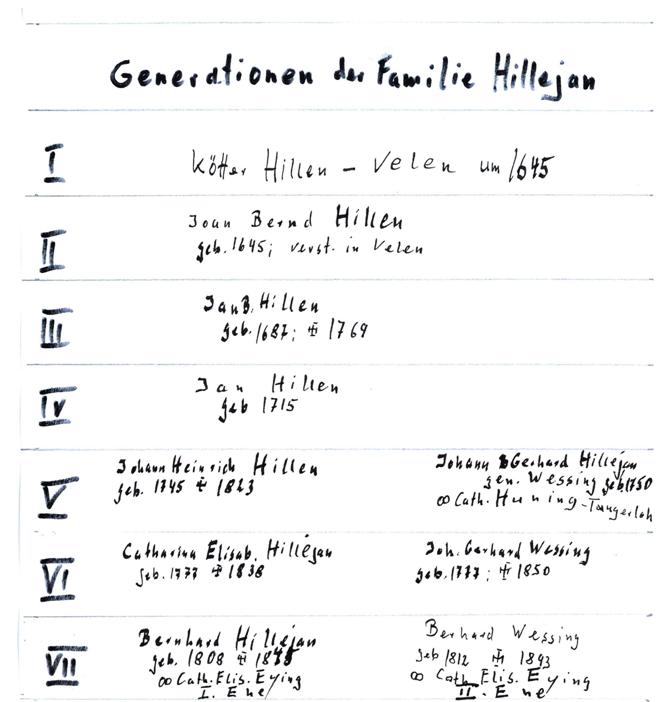 Generationen der Familie Hillejan
I
Kötter Hillen - Velen um 1645
II
Joan Bernd Hillen
geb. 1645; verst. in Velen
III
Jan B. Hillen
geb. 1687; ✠ 1769
IV
Jan Hillen
geb 1715
V
Johann Heinrich Hillen
geb. 1745 ✠ 1823
Johann Gerhard Hillejan
gen. Wessing geb. 1750
∞ Cath. Huning-Tungerloh
VI
Catharina Elisab. Hillejan
geb. 1777 ✠ 1838
Joh. Gerhard Wessing
geb. 1777; ✠ 1850
VII
Bernhard Hillejan
geb. 1808 ✠ 1875
∞ Cath. Elis. Eying
I. Ehe
Berhard Wessing
geb 1812 ✠ 1893
∞ Cath. Elis. Eying
II. Ehe